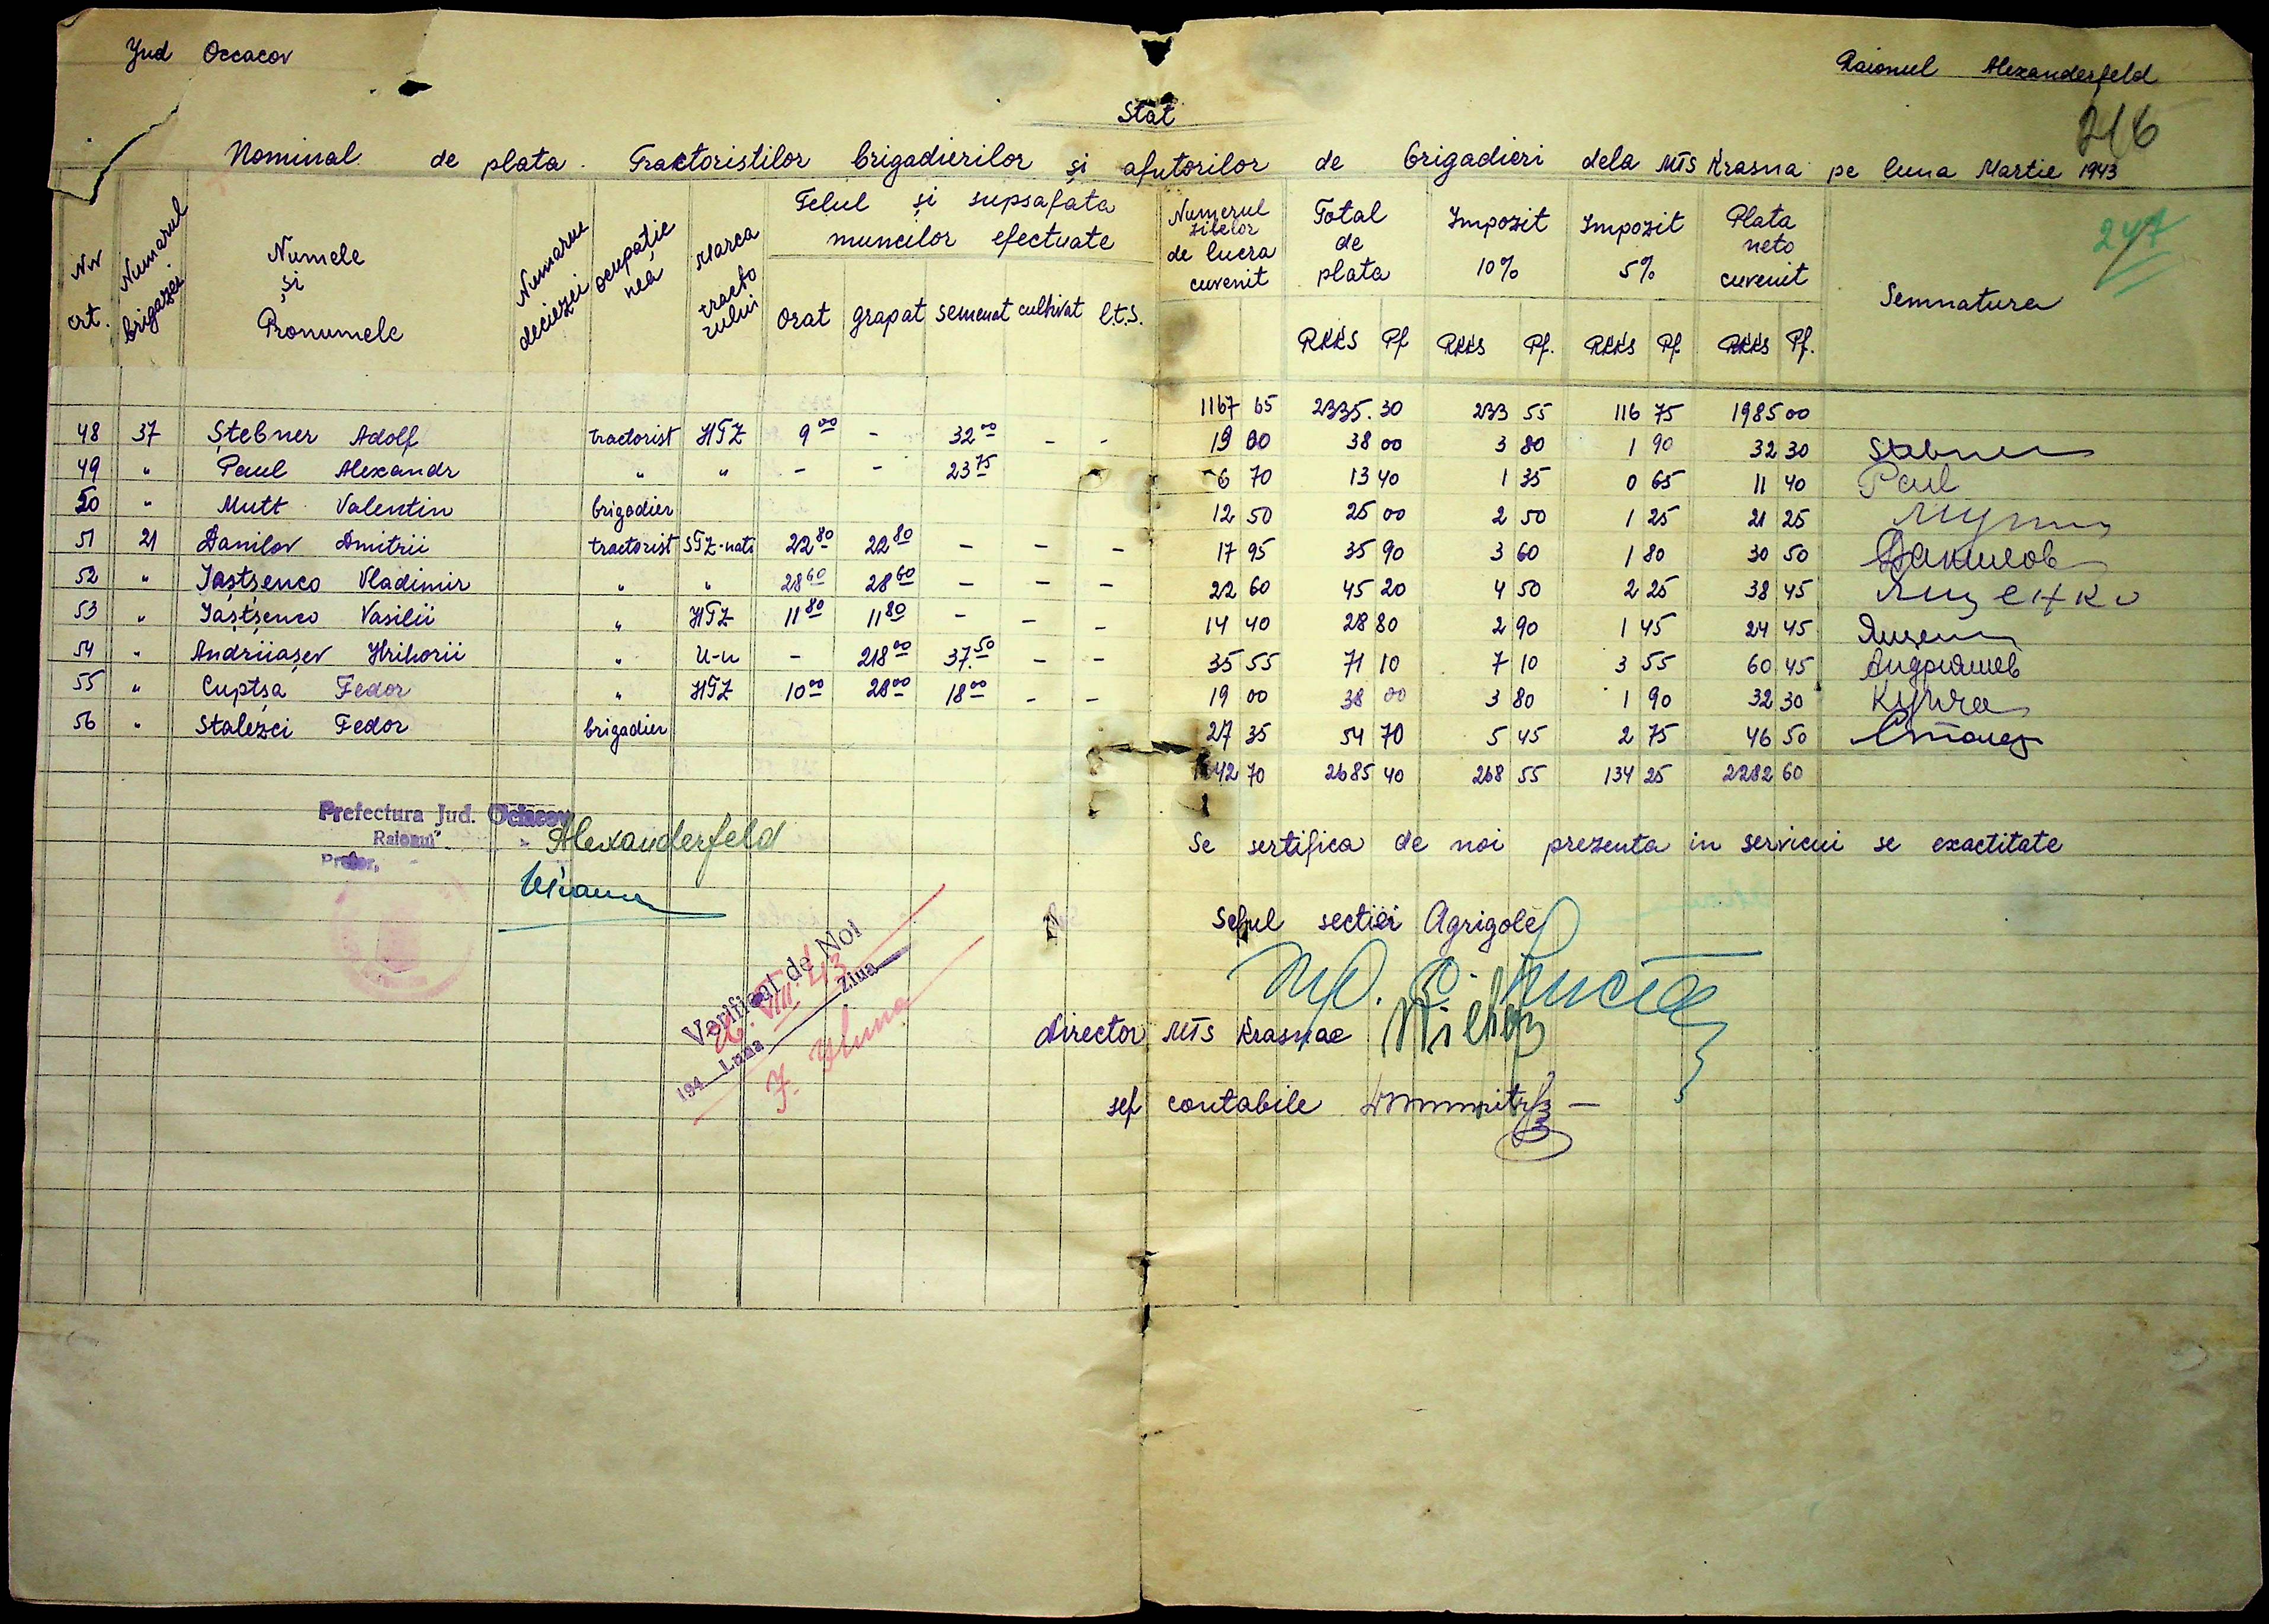 Jud Occacov
Raionul Alexanderfeld
216
Stat
Nominal de plata Tractoristilor brigadierilor și afutorilor de brigadieri dela MTS Krasna pe luna Martie 1943
247
Nr crt. | Numarul brigazei | Numele și Pronumele | Numarul deciezei | ocupatie nea | Marca tractorului | Felul și supsafata muncilor efectuate | Numerul zilelor de lucra cuvenit | Total de plata | Impozit 10% | Impozit 5% | Plata neto cuvenit | Semnatura
Orat | grapat | semenat | cultivat | l.t.s. | RKKS Pf | RKKS Pf. | RKKS Pf | RKKS Pf.
1167 65 2335.30 233 55 116 75 1985 00
48 37 Ștebner Adolf tractorist HTZ 9 00 - 32 00 - - 19 00 38 00 3 80 1 90 32 30 Stebner
49 " Paul Alexandr " " - - 23 75 6 70 13 40 1 35 0 65 11 40 Paul
50 " Mutt Valentin brigadier 12 50 25 00 2 50 1 25 21 25
51 21 Danilov Dmitrii tractorist STZ-nati 22 80 22 80 - - - 17 95 35 90 3 60 1 80 30 50 Данилов
52 " Iaștșenco Vladimir " " 28 60 28 60 - - - 22 60 45 20 4 50 2 25 38 45 Ященко
53 " Iaștșenco Vasilii " HTZ 11 80 11 80 - - - 14 40 28 80 2 90 1 45 24 45
54 " Andriiașev Hrihorii " U-u - 218 00 37.50 - - 35 55 71 10 7 10 3 55 60 45 Андрияшев
55 " Cuptșa Fedor " HTZ 10 00 28 00 18 00 - - 19 00 38 00 3 80 1 90 32 30 Купча
56 " Stalezci Fedor brigadier 27 35 54 70 5 45 2 75 46 50
42 70 2685 40 268 55 134 25 2282 60
Prefectura Jud. Ociacov
Raionul Alexanderfeld
Pretor,
Se sertifica de noi prezenta in serviciu se exactitate
Seful sectiei Agrigole
Verificat de Noi
194 Luna Ziua
VIII. 43
director MTS Krasnae
sef contabile